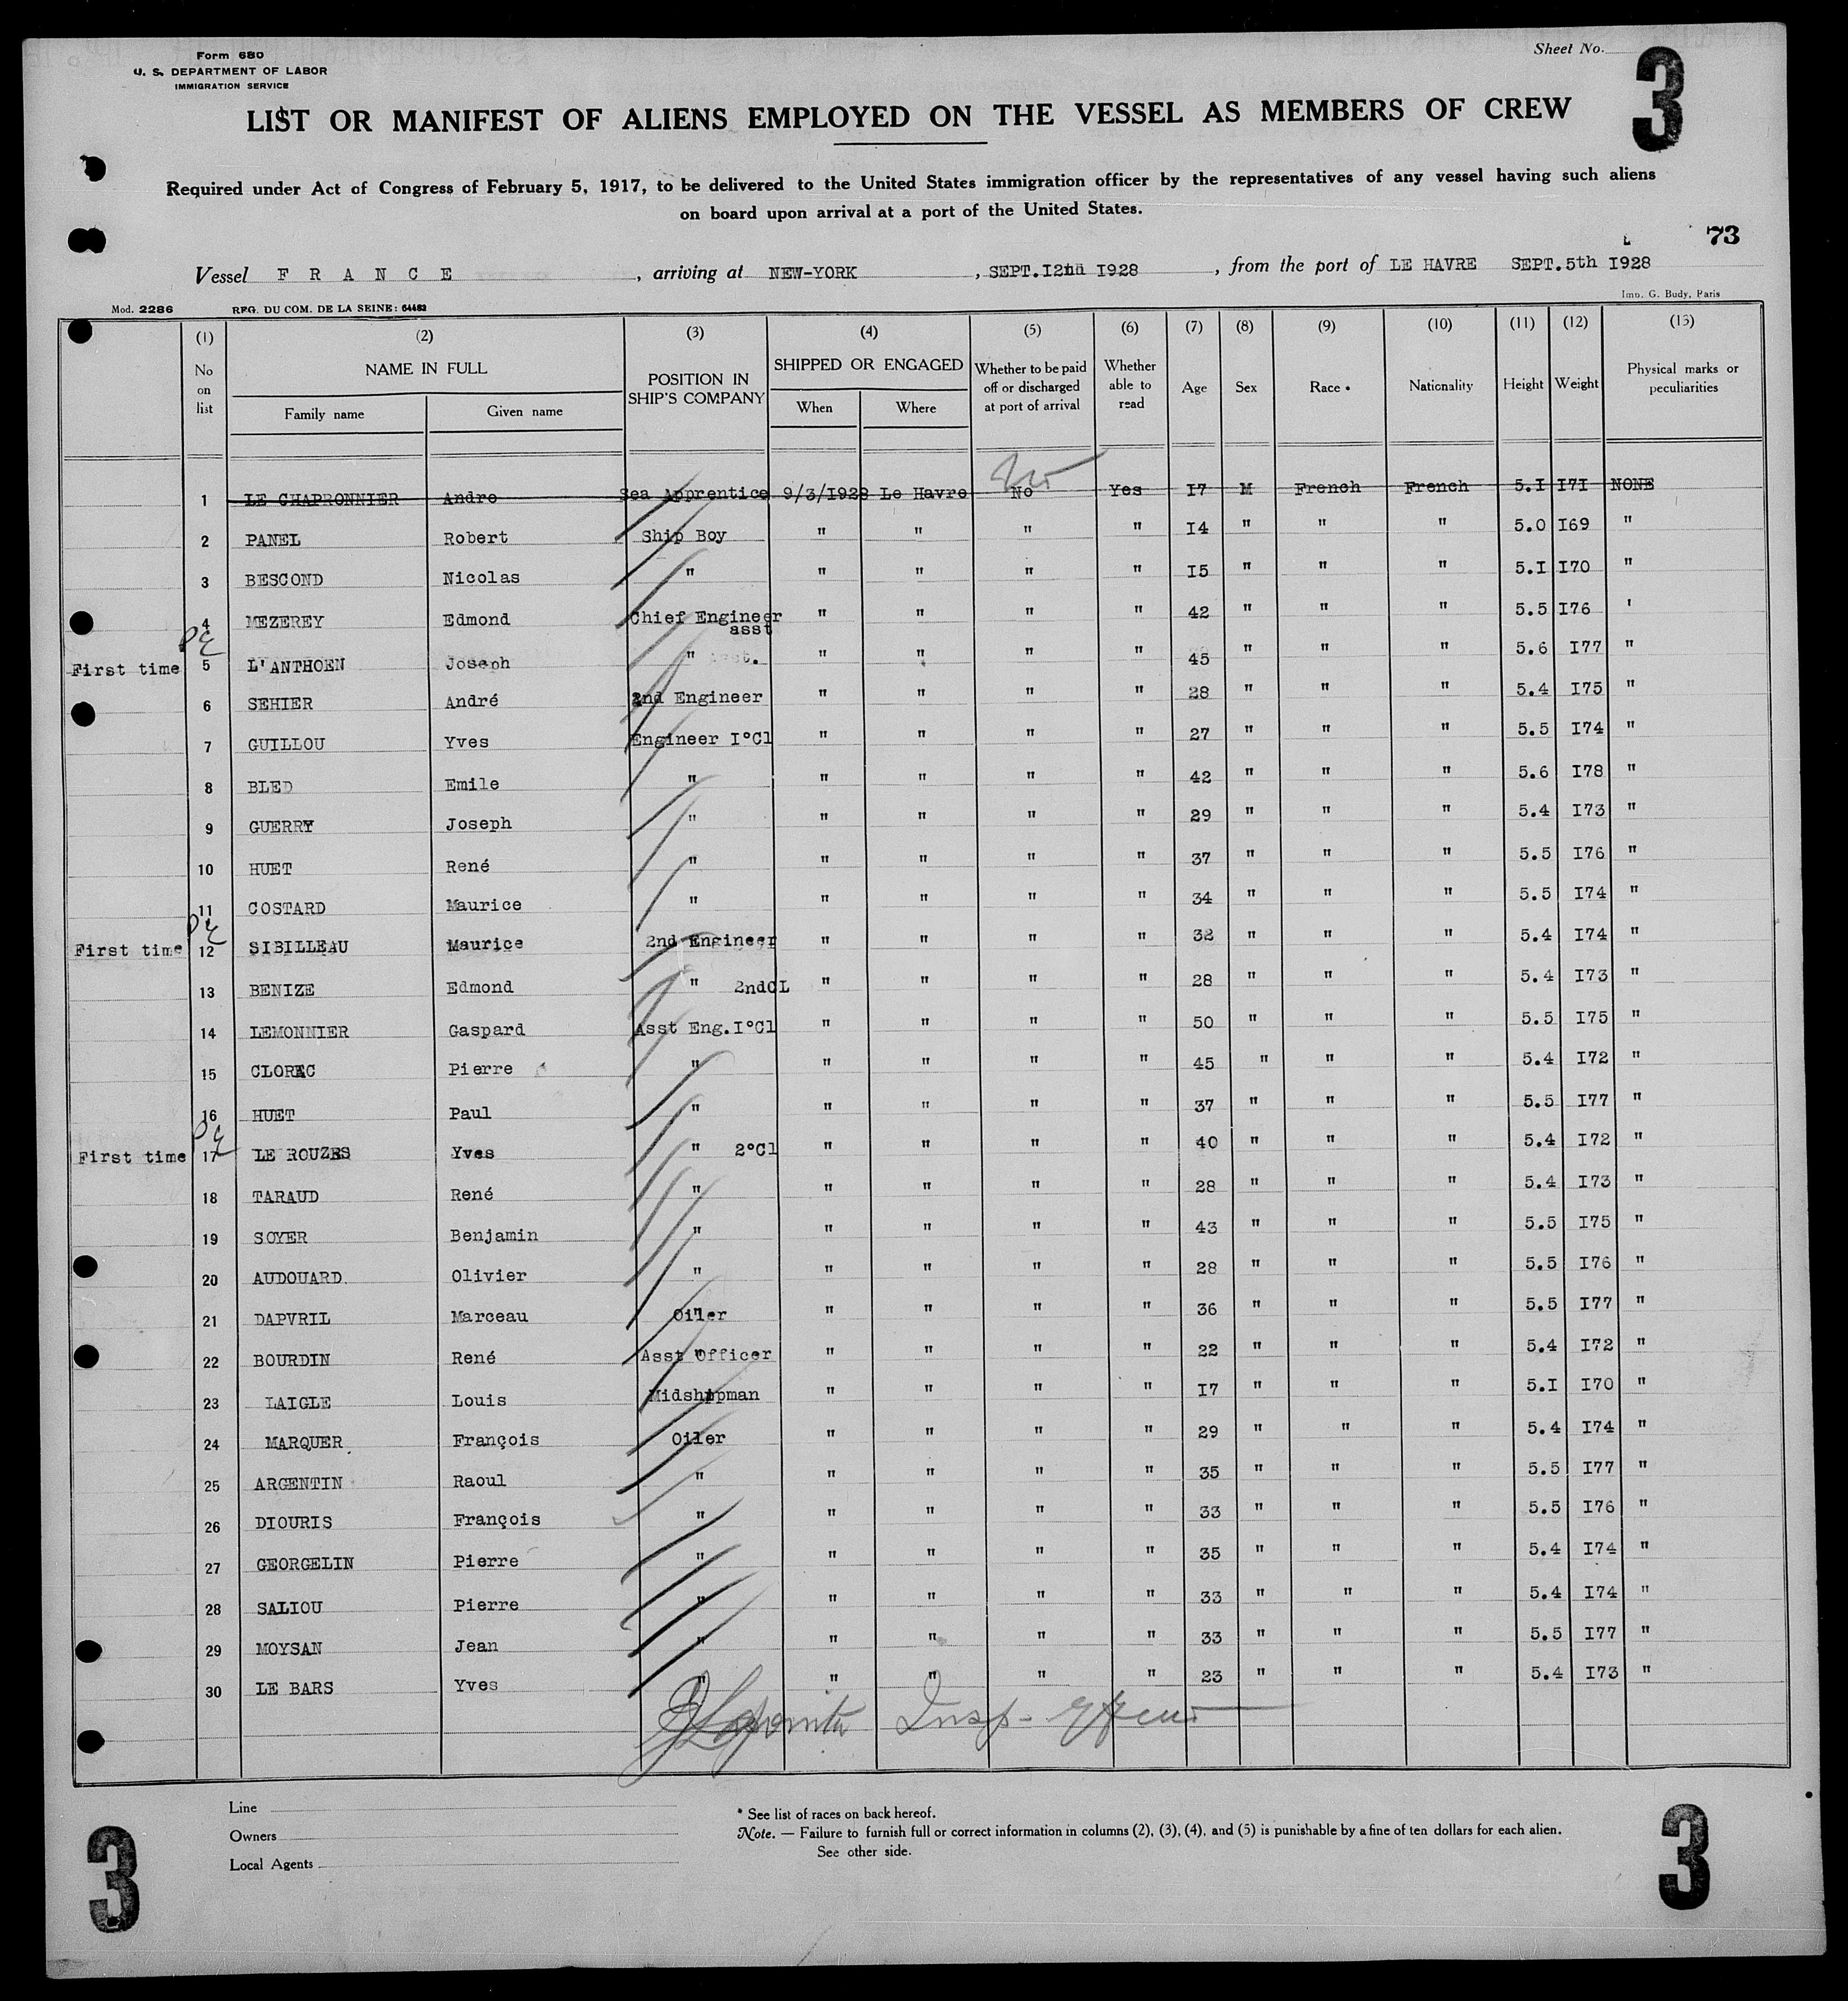 Form 680
U. S. DEPARTMENT OF LABOR
IMMIGRATION SERVICE
Sheet No.
3
LIST OR MANIFEST OF ALIENS EMPLOYED ON THE VESSEL AS MEMBERS OF CREW
Required under Act of Congress of February 5, 1917, to be delivered to the United States immigration officer by the representatives of any vessel having such aliens
on board upon arrival at a port of the United States.
73
Vessel F R A N C E , arriving at NEW-YORK , SEPT.I2th I928 , from the port of LE HAVRE SEPT.5th I928
Mod. 2286 REG. DU COM. DE LA SEINE: 64483 Imp. G. Budy, Paris
(1) (2) (3) (4) (5) (6) (7) (8) (9) (10) (11) (12) (13)
No on list NAME IN FULL POSITION IN SHIP'S COMPANY SHIPPED OR ENGAGED Whether to be paid off or discharged at port of arrival Whether able to read Age Sex Race * Nationality Height Weight Physical marks or peculiarities
Family name Given name When Where
1 LE CHAPRONNIER Andre Sea Apprentice 9/3/1928 Le Havre No Yes I7 M French French 5.I I7I NONE
2 PANEL Robert Ship Boy " " " " I4 " " " 5.0 I69 "
3 BESCOND Nicolas " " " " " I5 " " " 5.I I70 "
4 MEZEREY Edmond Chief Engineer " " " " 42 " " " 5.5 I76 '
asst
First time 5 L'ANTHOEN Joseph " asst. " " " " 45 " " " 5.6 I77 "
6 SEHIER André 2nd Engineer " " " " 28 " " " 5.4 I75 "
7 GUILLOU Yves Engineer I°Cl " " " " 27 " " " 5.5 I74 "
8 BLED Emile " " " " " 42 " " " 5.6 I78 "
9 GUERRY Joseph " " " " " 29 " " " 5.4 I73 "
10 HUET René " " " " " 37 " " " 5.5 I76 "
11 COSTARD Maurice " " " " " 34 " " " 5.5 I74 "
First time 12 SIBILLEAU Maurice 2nd Engineer " " " " 32 " " " 5.4 I74 "
13 BENIZE Edmond " 2ndCL " " " " 28 " " " 5.4 I73 "
14 LEMONNIER Gaspard Asst Eng.I°Cl " " " " 50 " " " 5.5 I75 "
15 CLOREC Pierre " " " " " 45 " " " 5.4 I72 "
16 HUET Paul " " " " " 37 " " " 5.5 I77 "
First time 17 LE ROUZES Yves " 2°Cl " " " " 40 " " " 5.4 I72 "
18 TARAUD René " " " " " 28 " " " 5.4 I73 "
19 SOYER Benjamin " " " " " 43 " " " 5.5 I75 "
20 AUDOUARD Olivier " " " " " 28 " " " 5.5 I76 "
21 DAPVRIL Marceau Oiler " " " " 36 " " " 5.5 I77 "
22 BOURDIN René Asst Officer " " " " 22 " " " 5.4 I72 "
23 LAIGLE Louis Midshipman " " " " I7 " " " 5.I I70 "
24 MARQUER François Oiler " " " " 29 " " " 5.4 I74 "
25 ARGENTIN Raoul " " " " " 35 " " " 5.5 I77 "
26 DIOURIS François " " " " " 33 " " " 5.5 I76 "
27 GEORGELIN Pierre " " " " " 35 " " " 5.4 I74 "
28 SALIOU Pierre " " " " " 33 " " " 5.4 I74 "
29 MOYSAN Jean " " " " " 33 " " " 5.5 I77 "
30 LE BARS Yves " " " " " 23 " " " 5.4 I73 "
Insp-
Line
Owners
Local Agents
* See list of races on back hereof.
Note. — Failure to furnish full or correct information in columns (2), (3), (4), and (5) is punishable by a fine of ten dollars for each alien.
See other side.
3
3